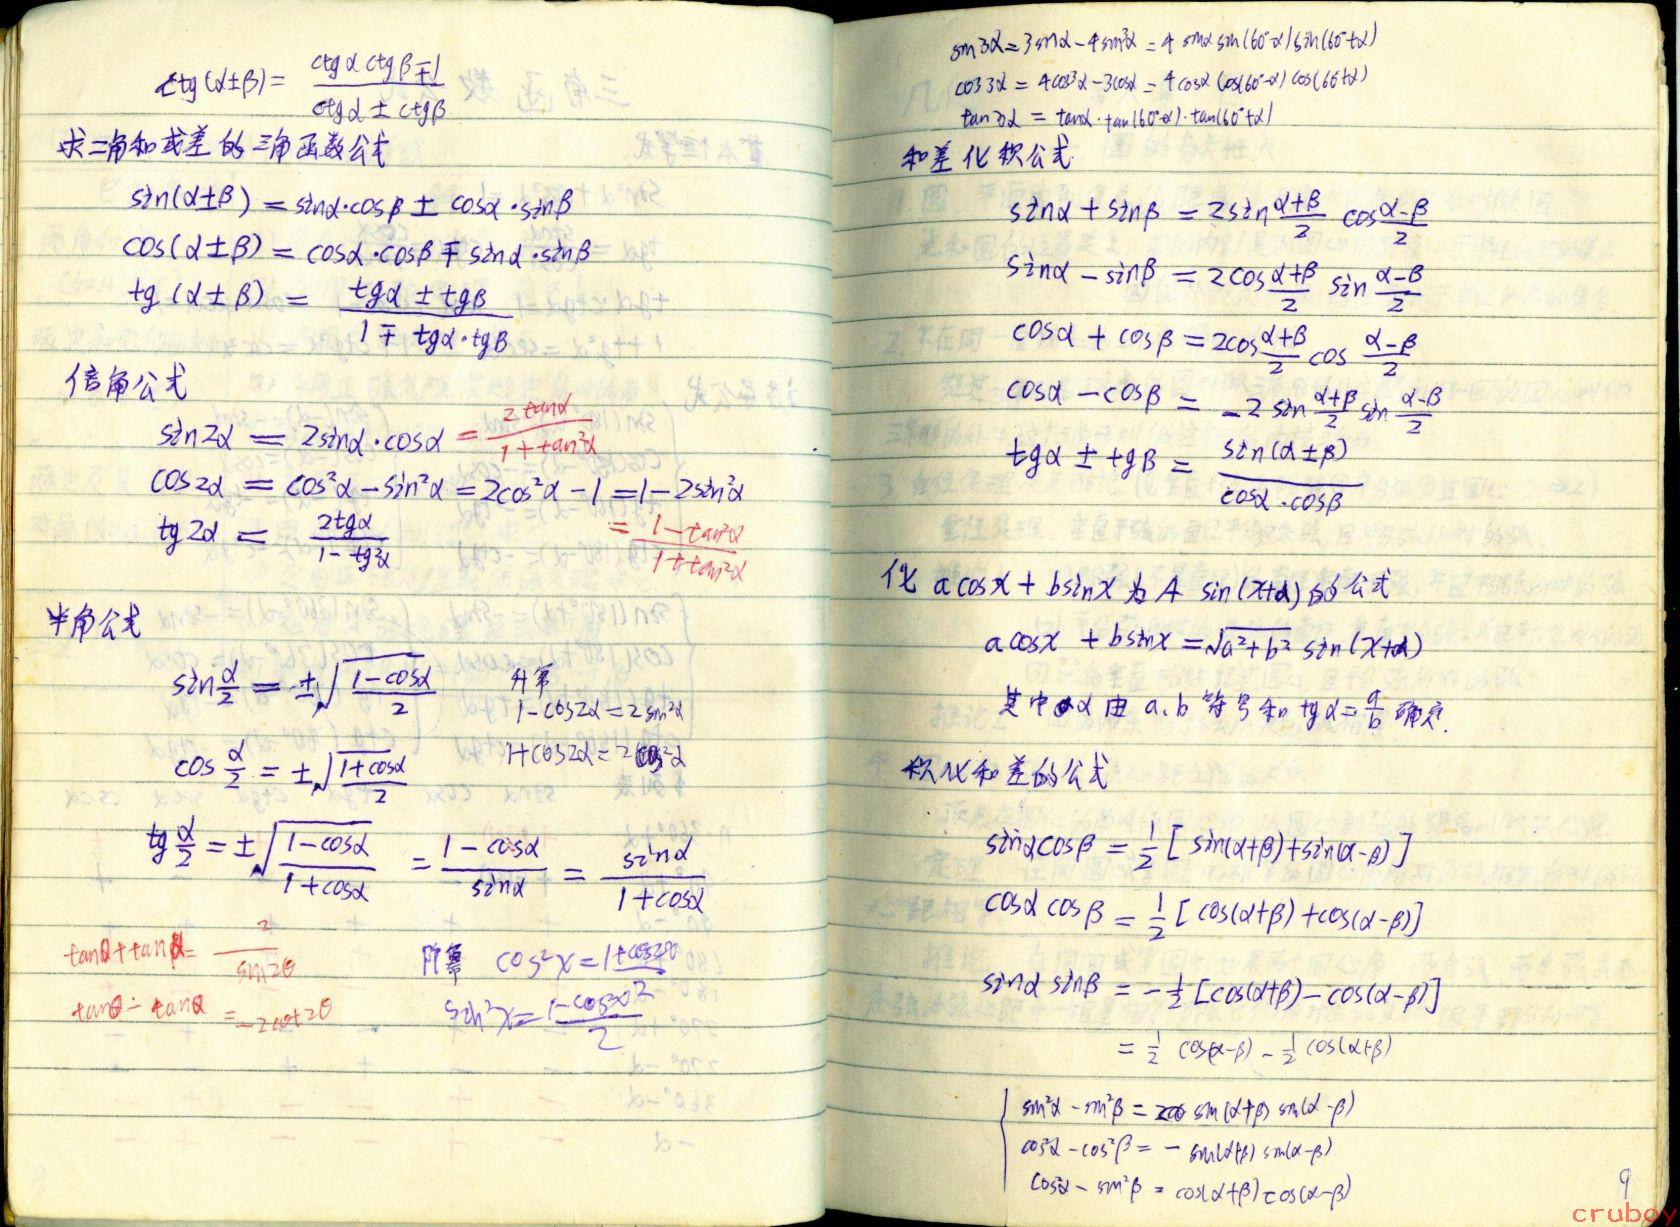 ctg(α±β) = (ctgα ctgβ ∓ 1)/(ctgα ± ctgβ)
求二角和或差的三角函数公式
sin(α±β) = sinα·cosβ ± cosα·sinβ
cos(α±β) = cosα·cosβ ∓ sinα·sinβ
tg(α±β) = (tgα ± tgβ)/(1 ∓ tgα·tgβ)
倍角公式
sin2α = 2sinα·cosα = 2tanα/(1+tan²α)
cos2α = cos²α - sin²α = 2cos²α - 1 = 1 - 2sin²α
= (1-tan²α)/(1+tan²α)
tg2α = 2tgα/(1-tg²α)
半角公式
sin α/2 = ±√((1-cosα)/2)
升幂
1-cos2α = 2sin²α
cos α/2 = ±√((1+cosα)/2)
1+cos2α = 2cos²α
tg α/2 = ±√((1-cosα)/(1+cosα)) = (1-cosα)/sinα = sinα/(1+cosα)
= 2/sin2θ
= -2cot2θ
cos²x =
sin²x =
sin3α = 3sinα - 4sin³α = 4sinα sin(60°-α) sin(60°+α)
cos3α = 4cos³α - 3cosα = 4cosα cos(60°-α) cos(60°+α)
tan3α = tanα·tan(60°-α)·tan(60°+α)
和差化积公式
sinα + sinβ = 2sin (α+β)/2 cos (α-β)/2
sinα - sinβ = 2cos (α+β)/2 sin (α-β)/2
cosα + cosβ = 2cos (α+β)/2 cos (α-β)/2
cosα - cosβ = -2 sin (α+β)/2 sin (α-β)/2
tgα ± tgβ = sin(α±β)/(cosα·cosβ)
化 a cosx + b sinx 为 A sin(x+α) 的公式
a cosx + b sinx = √(a²+b²) sin(x+α)
其中 α 由 a、b 符号和 tgα = a/b 确定.
积化和差的公式
sinαcosβ = 1/2 [sin(α+β)+sin(α-β)]
cosα cosβ = 1/2 [cos(α+β)+cos(α-β)]
sinα sinβ = -1/2 [cos(α+β)-cos(α-β)]
= 1/2 cos(α-β) - 1/2 cos(α+β)
sin²α - sin²β = sin(α+β) sin(α-β)
cos²α - cos²β = - sin(α+β) sin(α-β)
cos²α - sin²β = cos(α+β) cos(α-β)
9
cruboy